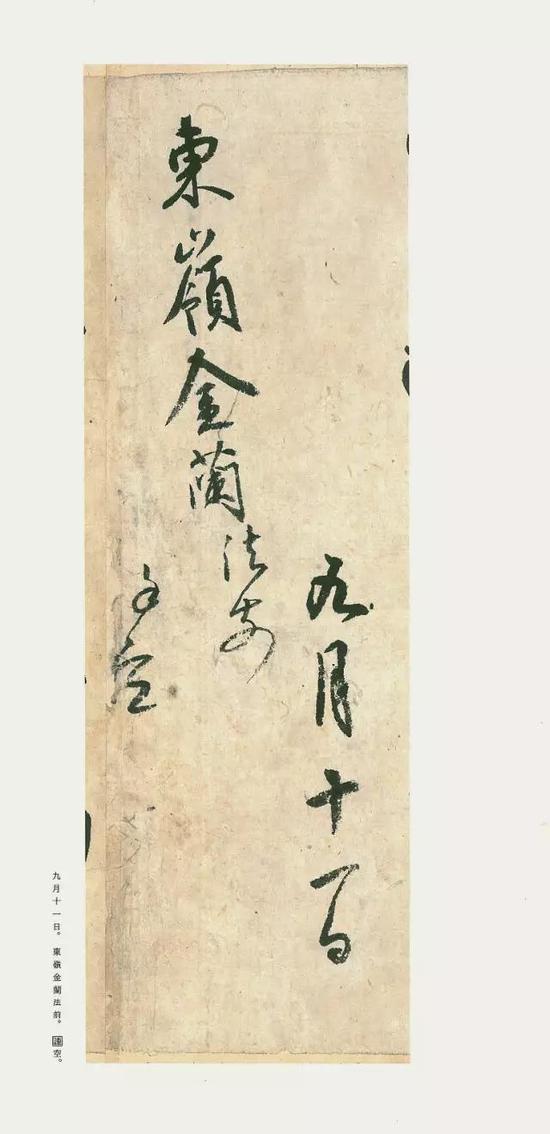 九月十一日
東嶺金蘭法前
空
九月十一日。東嶺金蘭法前。空。